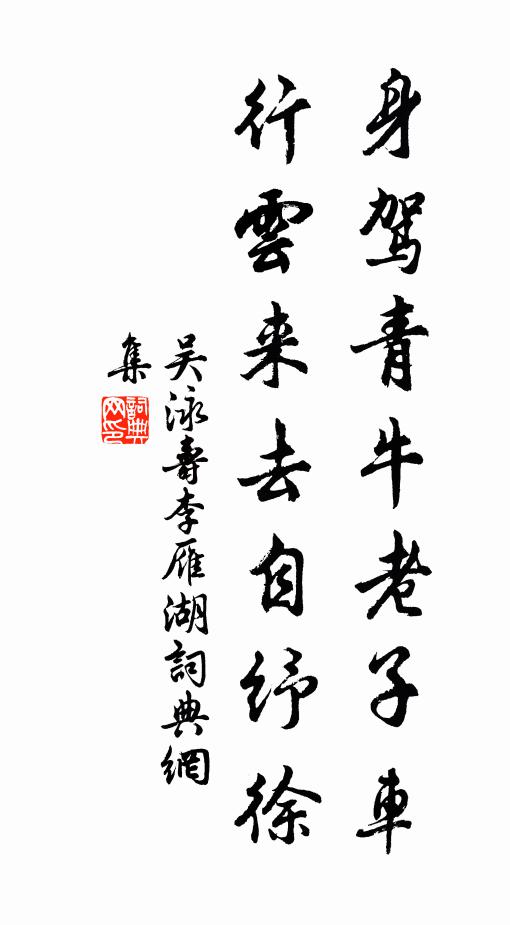 身駕青牛老子車
行雲来去自紓徐
吴泳壽李雁湖詞典網
集
詞典網印